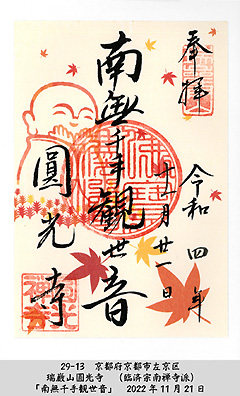 奉拝
令和四年
十一月廿一日
南無千手観世音
圓光寺
29-13 京都府京都市左京区
瑞巌山圓光寺 (臨済宗南禅寺派)
「南無千手観世音」 2022年11月21日